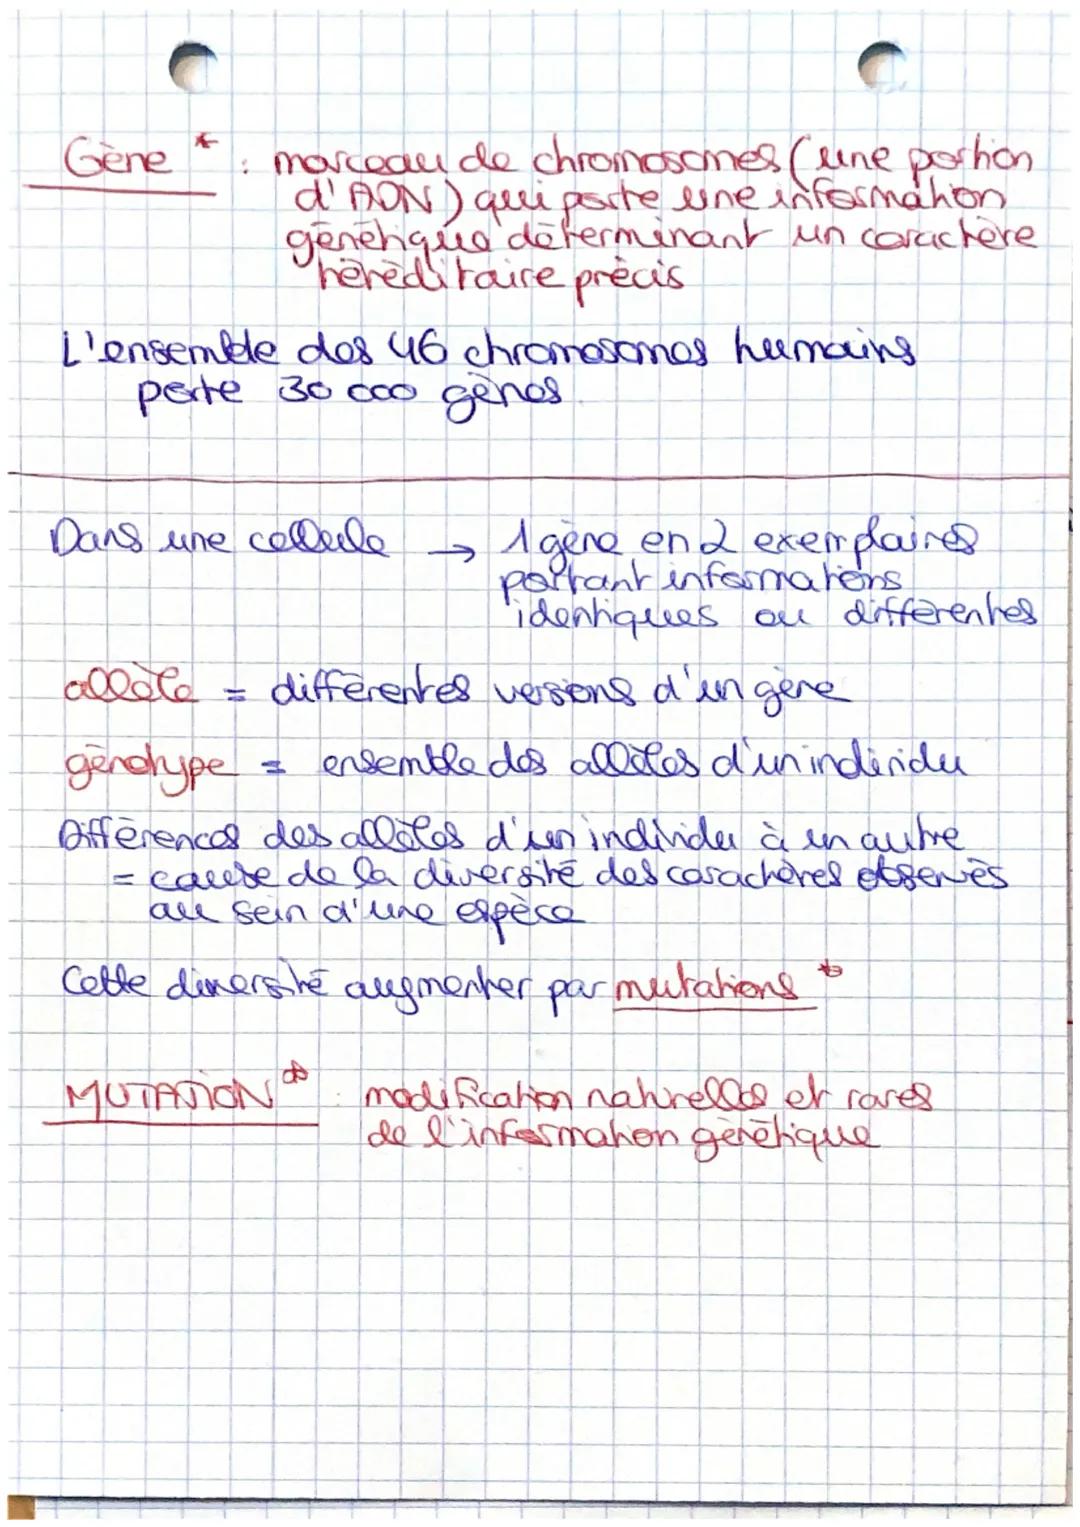 Gène * : morceau de chromosomes (une portion
d'ADN) qui porte une information
génétique déterminant un caractère
héréditaire précis
L'ensemble des 46 chromosomes humains
porte 30 000 gènes
Dans une cellule → 1 gène en 2 exemplaires
portant informations
identiques ou différentes
allèle = différentes versions d'un gène
génotype = ensemble des allèles d'un individu
Différences des allèles d'un individu à un autre
= cause de la diversité des caractères observés
au sein d'une espèce
Cette diversité augmenter par mutations *
MUTATION * : modification naturelles et rares
de l'information génétique